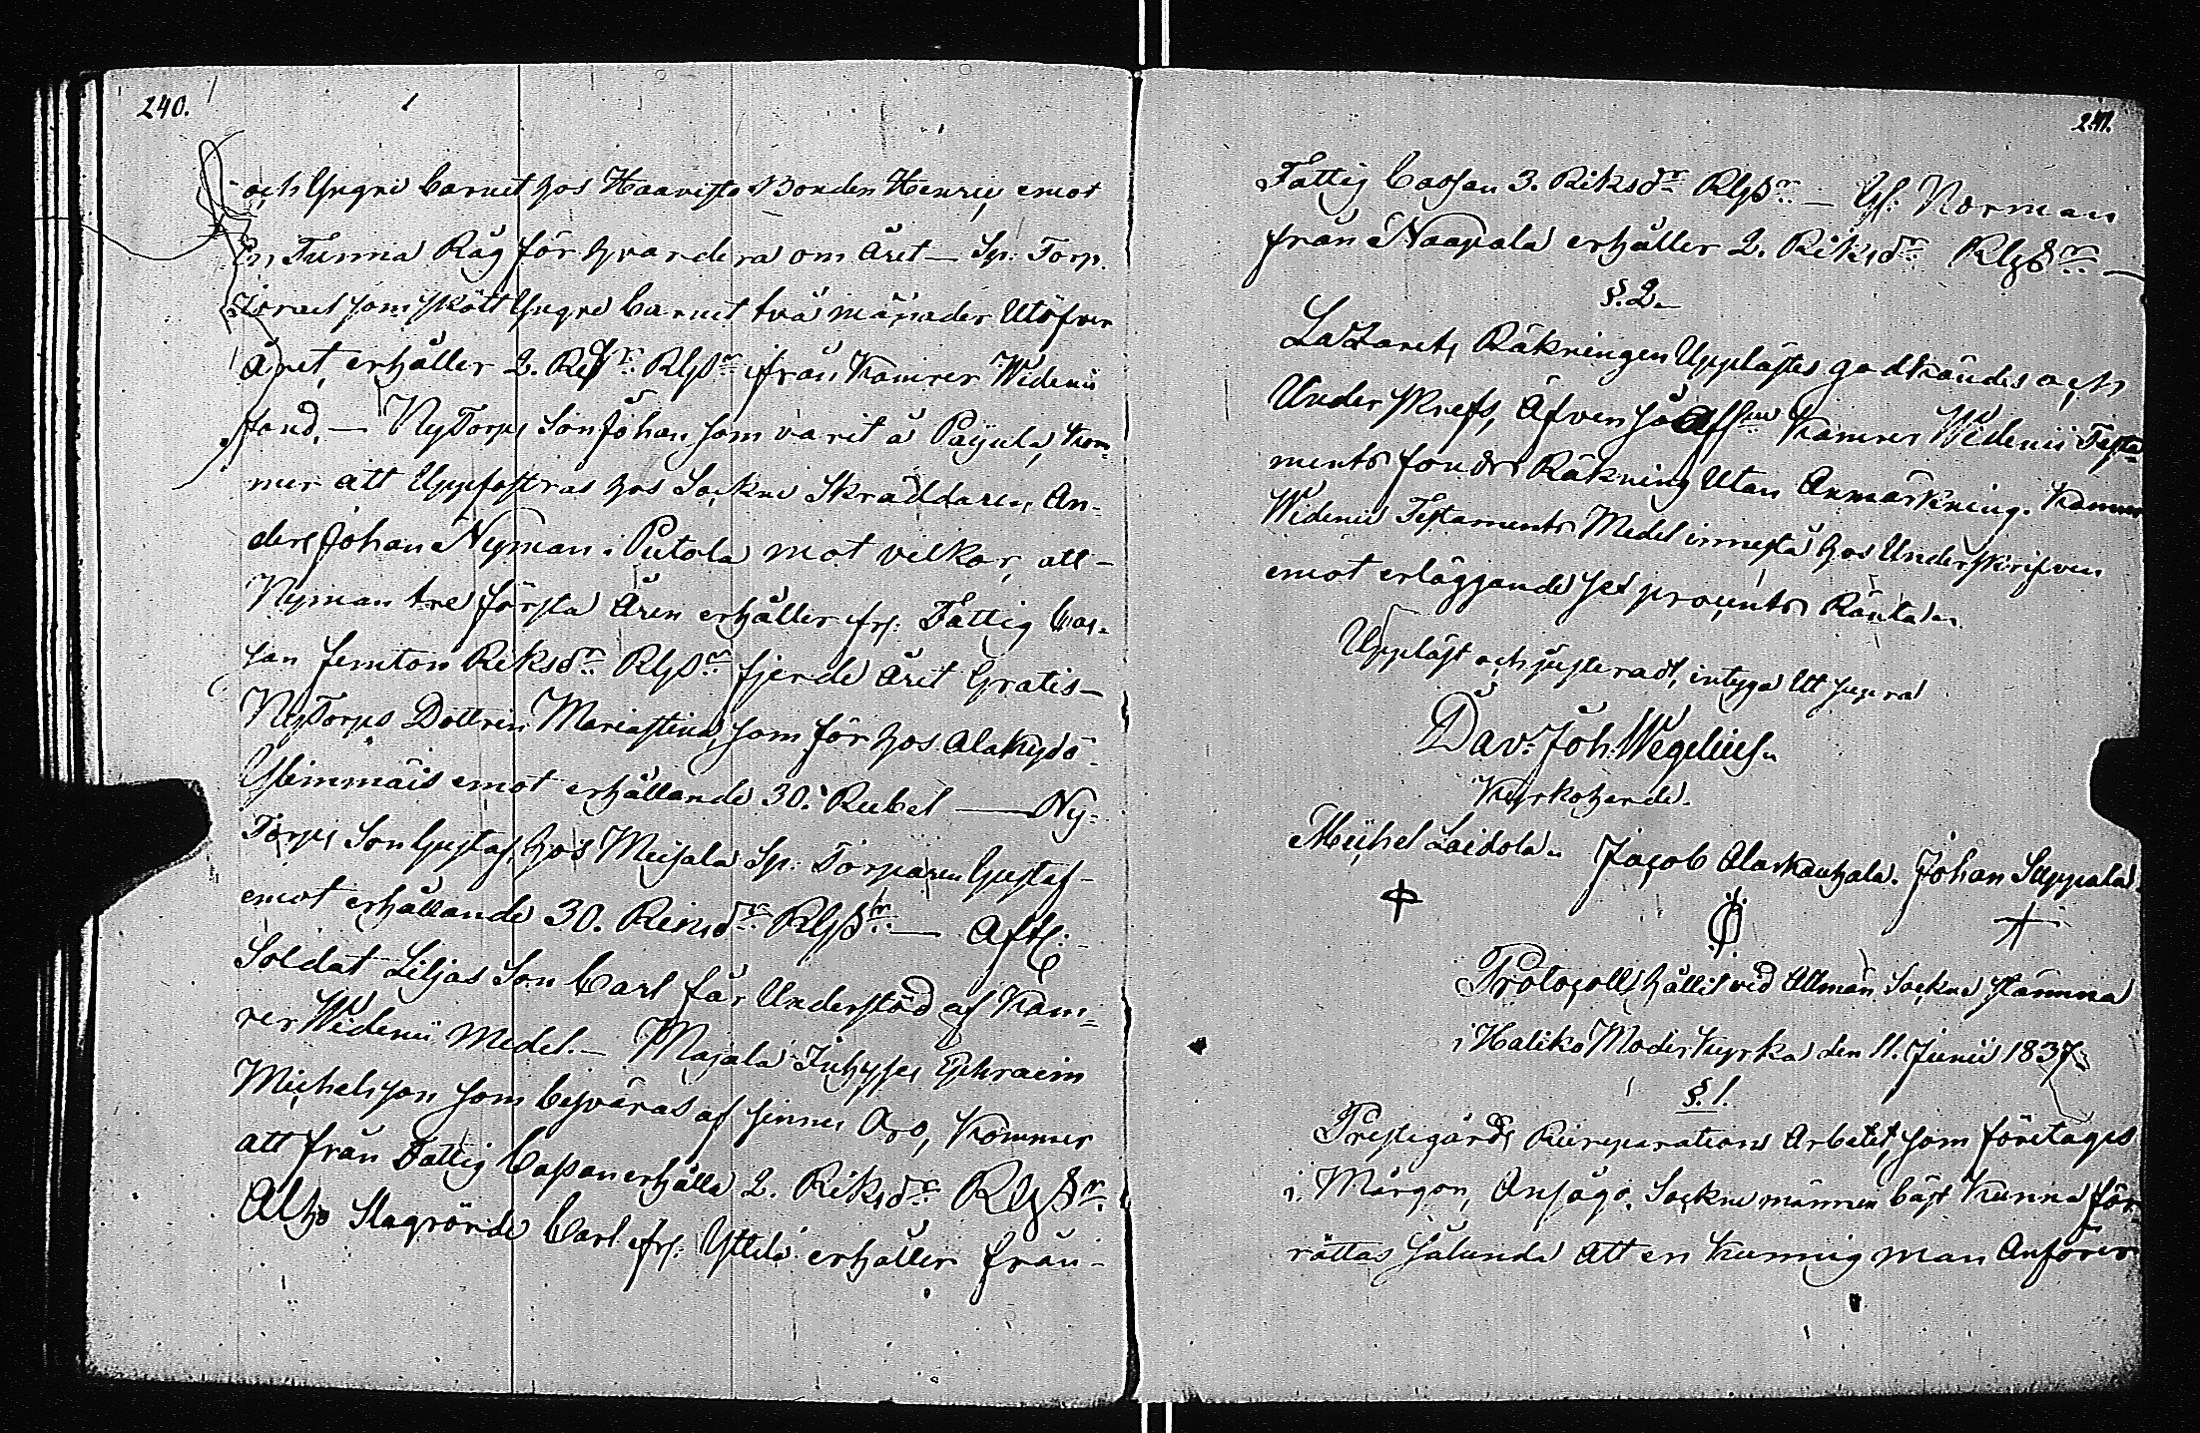 240.
och Yngre barnet hos Haavisto Bonden Henric, emot
En Tunna Råg för hvardera om Året — Sp: Torp.
som skött Yngre barnet två månader Utöfver
Året, erhåller 2. Rdr. RgSr. från Kamrer Widenii
fond. — NyTorps Son Johan som varit å Pajula, kom-
mer att Uppfostras hos Sockne Skräddaren An-
ders Johan Nyman i Putola mot vilkor, att
Nyman tre första Åren erhåller fr: Fattig Cas-
san femton Riksdr RgSr fjerde Året Gratis —
NyTorps Dottren Mariastina, som för hos Alakydö
emot erhållande 30. Rubel — Ny-
Torps Son Gustaf, hos Meisala Sp: Torparen Gustaf
emot erhållande 30. Riksdr RgSr. — Afsk:
Soldat Liljas Son Carl får Understöd af Kam-
rer Widenii Medel. — Majala Inhyses Ephraim
Michelsson som besväras af sinnes Oro, kommer
att från Fattig Cassan erhålla 2. Riksdr RgSr.
Alho Slagrörde Carl fr: Yttelä erhåller från
241.
Fattig Cassan 3. Riksdr RgSr. — Gl: Norman
från Naapala erhåller 2. Riksdr RgSr. —
§. 2.
Lazarets Räkningen Upplästes godkändes och
Underskrefs, Äfven så Kamrer Widenii Testa-
ments fonds Räkning Utan Anmärkning. Kamrer
Widenii Testaments Medel innestå hos Underskrifven
emot erläggande sex procents Ränta.
Uppläst och justeradt, intyga Ut supra
Dav: Joh: Wegelius.
Kyrkoherde.
Michel Laidola. Jacob Alaskauhala. Johan Suppala.
Protocoll hållit vid Allmän Sockne Stämma
i Haliko Moder Kyrka den 11. Junii 1837.
§. 1.
Prestegårds Reparations Arbetet, som företages
i Morgon, Ansågo Socknemännen bäst kunna för-
rättas sålunda Att en kunnig man Anförer